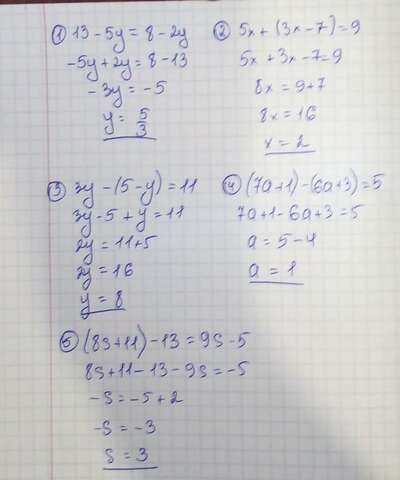 ① 13 - 5y = 8 - 2y
-5y + 2y = 8 - 13
-3y = -5
y = 5/3
② 5x + (3x - 7) = 9
5x + 3x - 7 = 9
8x = 9 + 7
8x = 16
x = 2
③ 3y - (5 - y) = 11
3y - 5 + y = 11
2y = 11 + 5
2y = 16
y = 8
④ (7a + 1) - (6a + 3) = 5
7a + 1 - 6a + 3 = 5
a = 5 - 4
a = 1
⑤ (8s + 11) - 13 = 9s - 5
8s + 11 - 13 - 9s = -5
-s = -5 + 2
-s = -3
s = 3